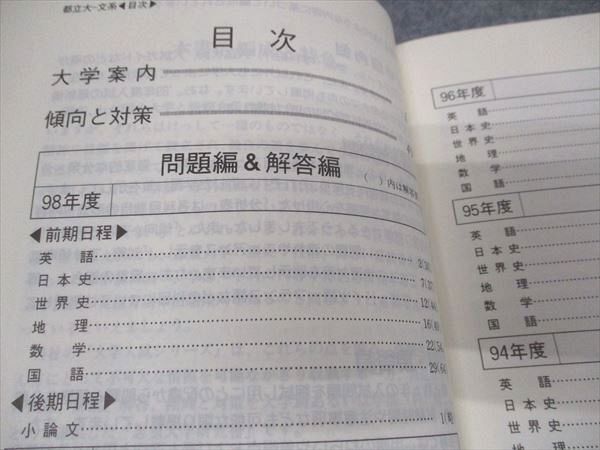 都立大-文系◀目次▶
目次
大学案内
傾向と対策
問題編&解答編
98年度
◀前期日程▶
英語
日本史
世界史
地理
数学
国語
◀後期日程▶
小論文
96年度
英語
日本史
世界史
地理
数学
国語
95年度
英語
日本史
世界史
地理
数学
国語
94年度
英語
日本史
世界史
地理